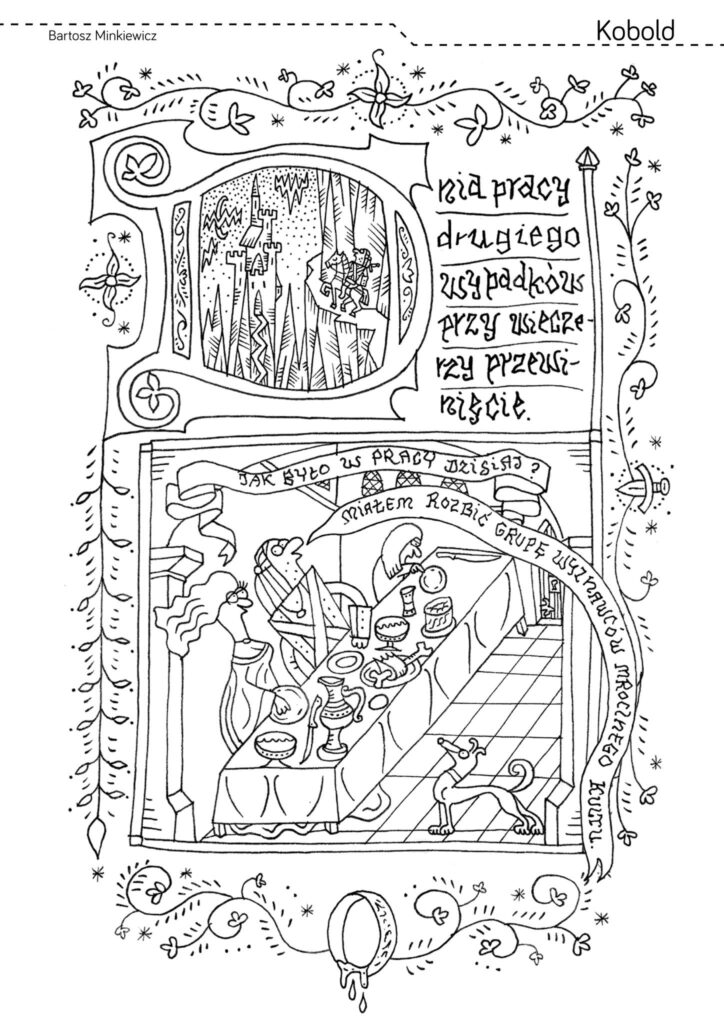 Bartosz Minkiewicz
Kobold
Dnia pracy
drugiego
wypadków
przy wiecze-
rzy przewi-
nięcie.
JAK BYŁO W PRACY DZISIAJ?
MIAŁEM ROZBIĆ GRUPĘ WYZNAWCÓW MROCZNEGO KULTU.